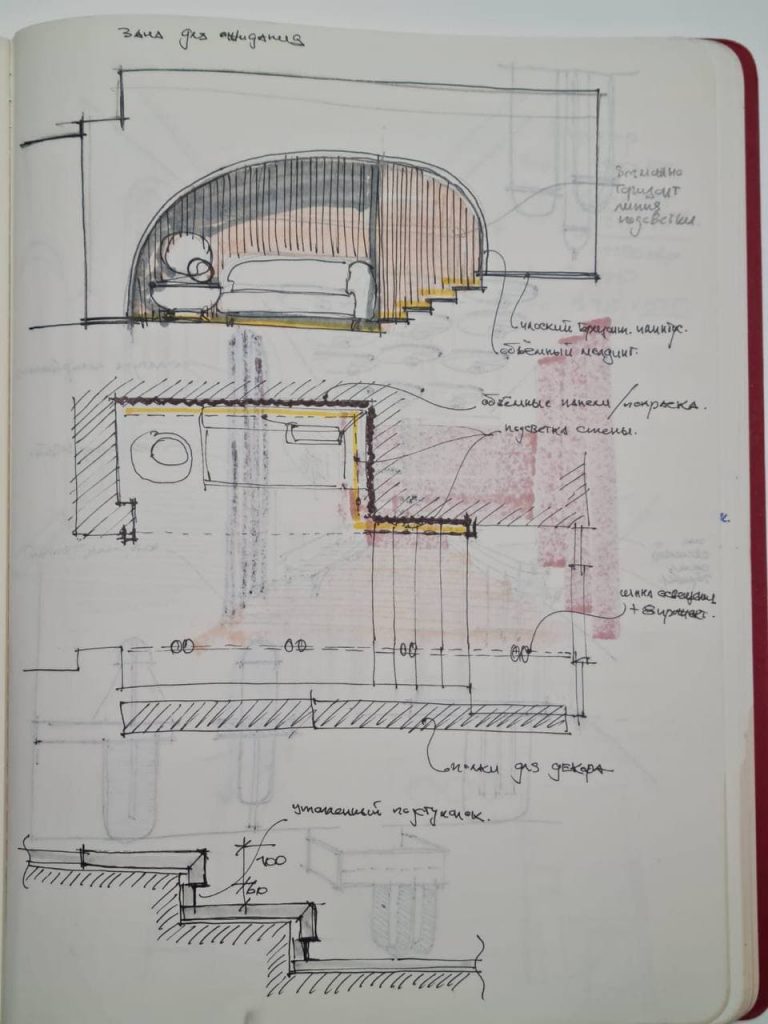 Зона для ожидания
возможно
горизонт
линия
подсветки
плоский горизонт. плинтус.
объёмный молдинг.
объёмные панели/покраска.
подсветка стены.
шина освещения
+ 
полки для декора
утопленный подступенок.
100
60